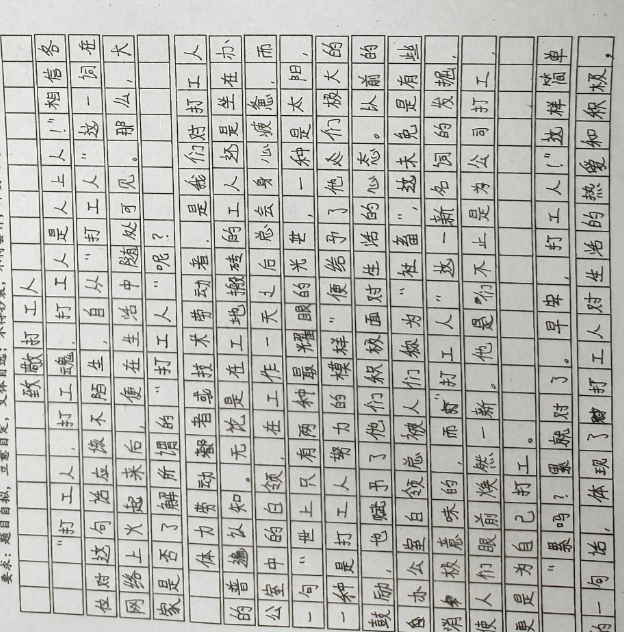 要求：题目自拟，立意自定，文体自选；不得抄袭，不得套作
致敬打工人
“打工人，打工魂，打工人是人上人！”相信各
位对这句话应该不陌生，自从“打工人”这一词在
网络上火起来后，便在生活中随处可见。那么，大
家是否了解所谓的“打工人”呢？
体力劳动者或技术劳动者，是我们对打工人
的普遍认知。无论是在工地搬砖的工人还是坐在办
公室中的白领，在工作一天之后总会身心疲惫，而
一句“世上只有两种最耀眼的光芒，一种是太阳，
一种是打工人努力的模样”便给予了他们极大的
鼓励，也赋予了他们积极面对生活的心态。以前的
办公室白领总被人们称为“社畜”，这未免是有些
消极意味的，而“打工人”这一新名词的发掘，
使人们眼前焕然一新。他们不止是为公司打工，
更是为自己打工。
“累吗？累就对了。早安，打工人！”这样简单
的一句话，体现了打工人对生活的热爱和积极，